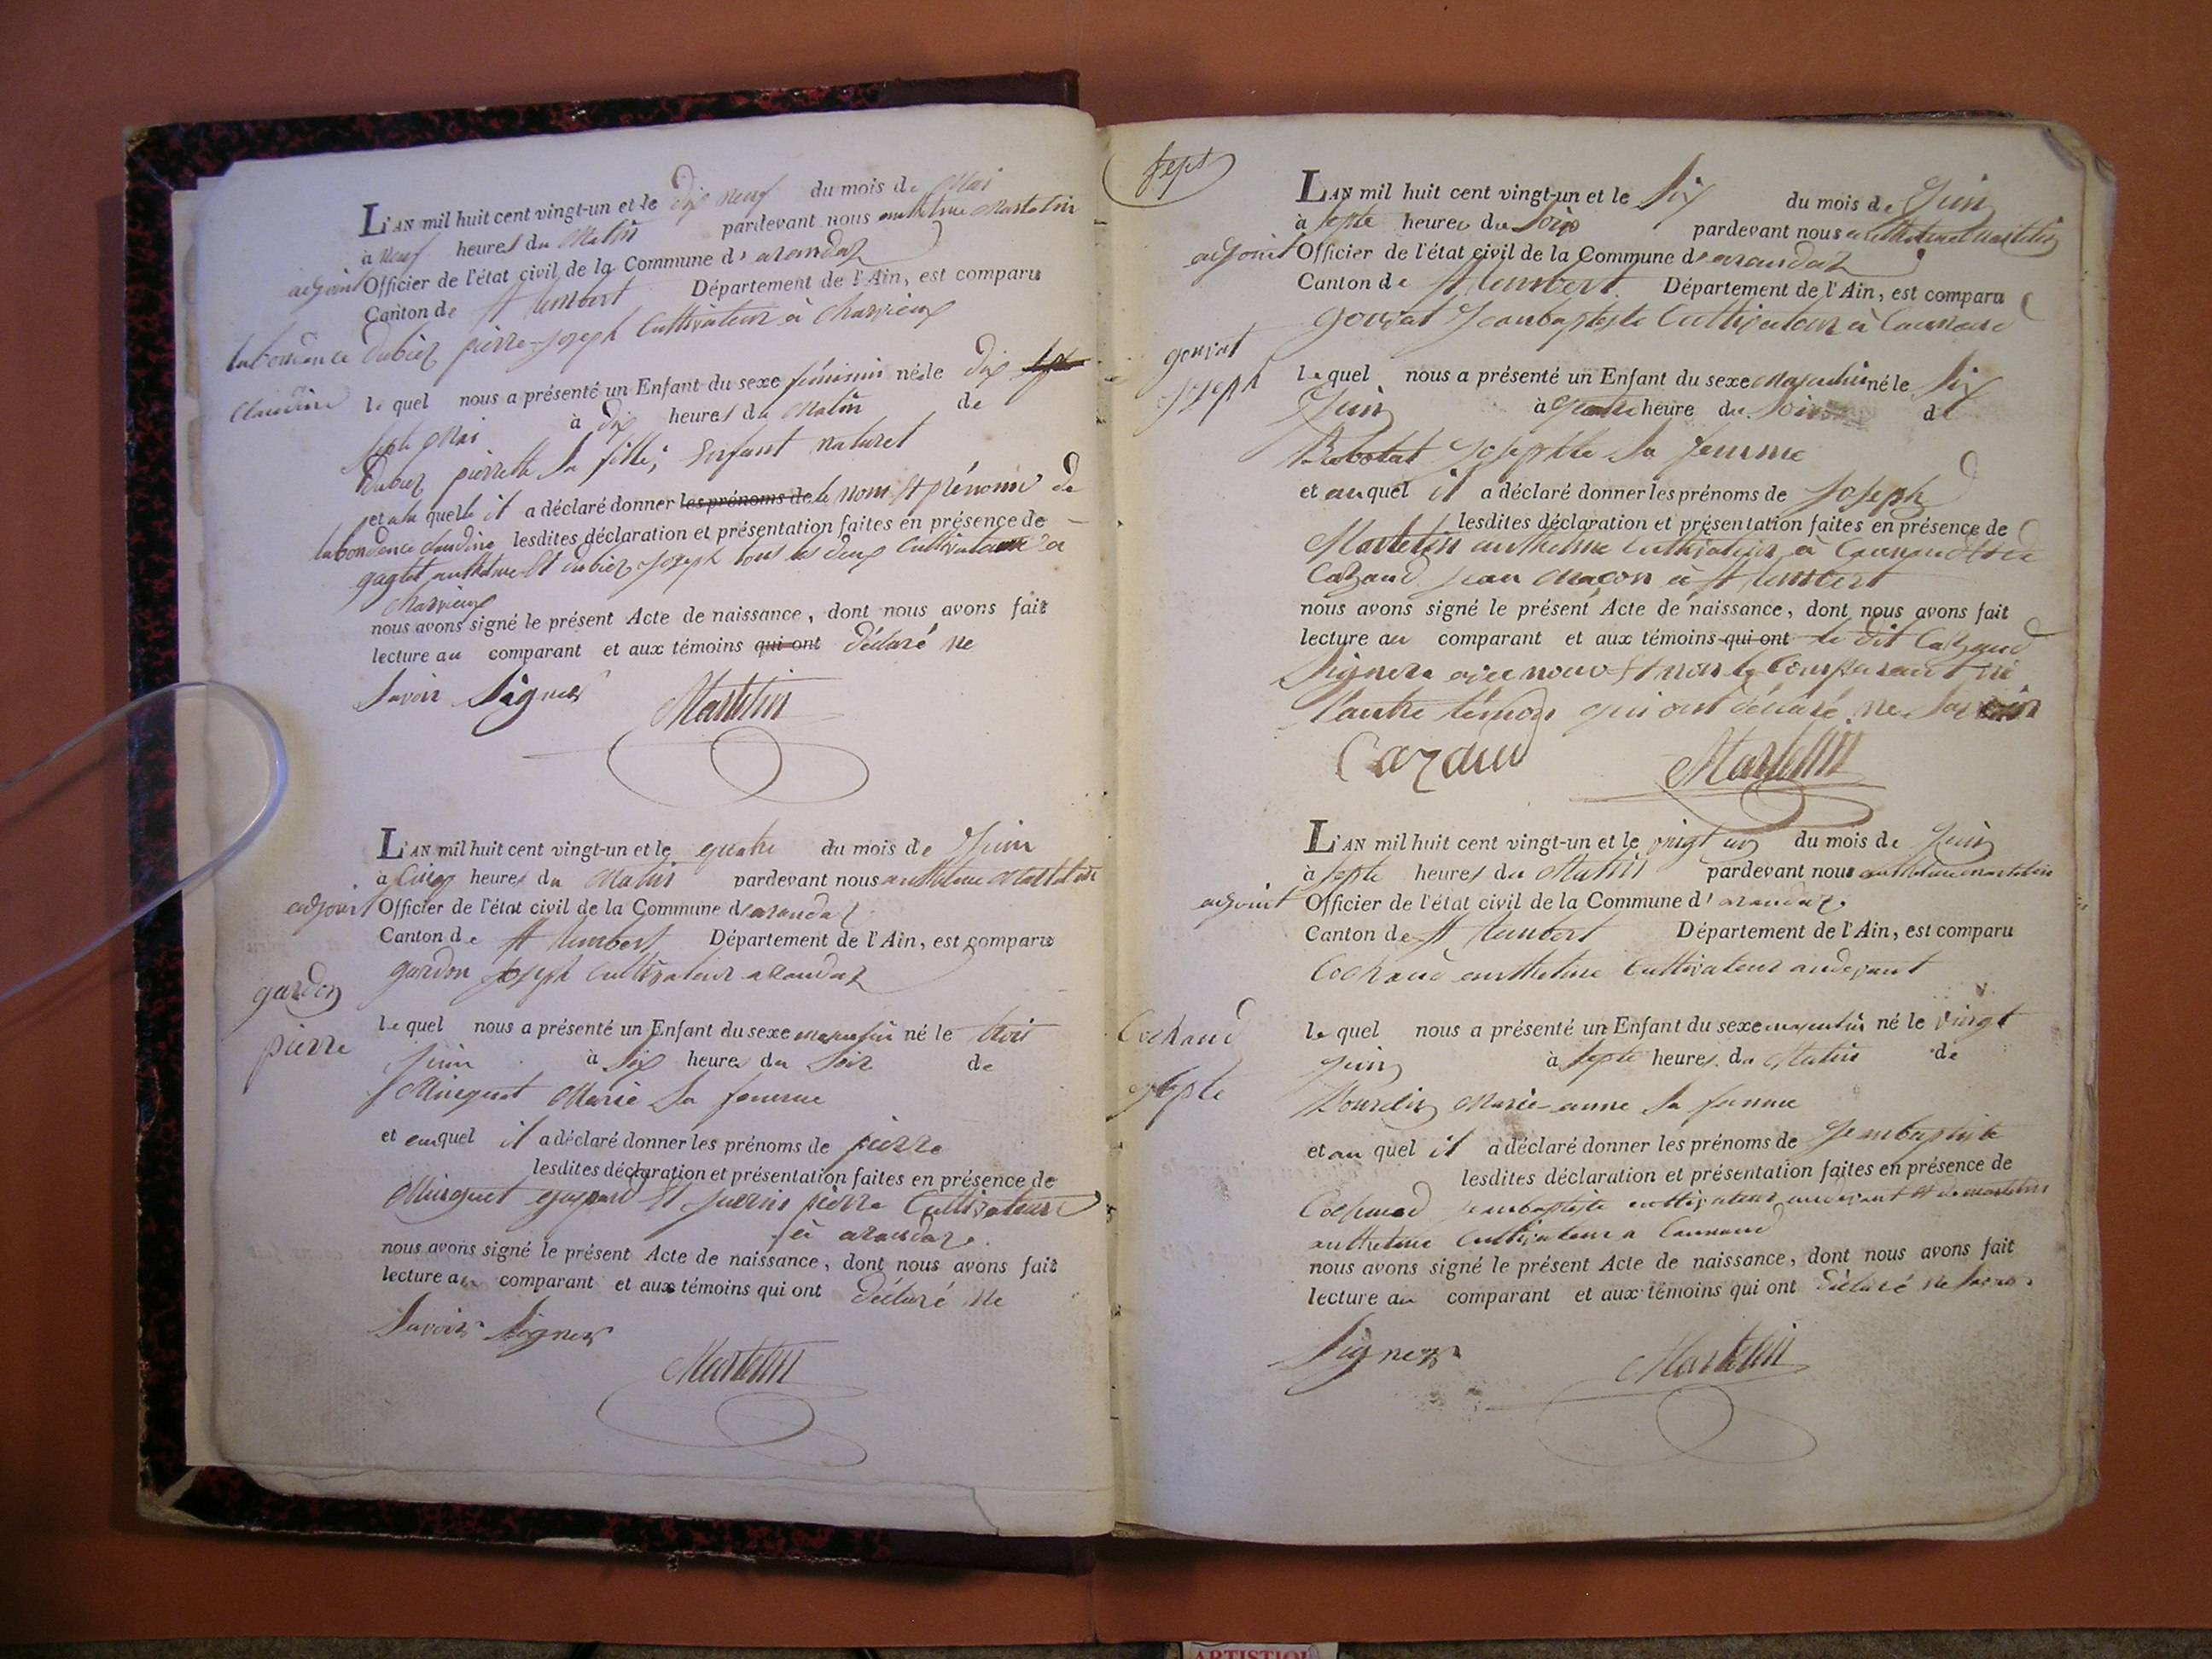 L'AN mil huit cent vingt-un et le dix neuf du mois de Mai
à neuf heures du Matin pardevant nous anthelme Martelin
adjoint Officier de l'état civil de la Commune d'arandaz
Canton de St Rambert Département de l'Ain, est comparu
Dubiez pierre-joseph Cultivateur à
labondance
Claudine
le quel nous a présenté un Enfant du sexe féminin née le dix septe
septe Mai à dix heures du Matin de
Dubiez pierrette sa fille, Enfant naturel
et a la quelle il a déclaré donner les prénoms de le nom et prénoms de
labondance claudine lesdites déclaration et présentation faites en présence de
anthelme Et dubiez joseph tous les deux Cultivateurs a
nous avons signé le présent Acte de naissance, dont nous avons fait
lecture au comparant et aux témoins qui ont déclaré ne
Savoir Signer
Martelin
L'AN mil huit cent vingt-un et le quatre du mois de Juin
à Cinq heures du Matin pardevant nous anthelme Martelin
adjoint Officier de l'état civil de la Commune d'arandaz
Canton de St Rambert Département de l'Ain, est comparu
gardon joseph Cultivateur a arandaz
gardon
pierre
le quel nous a présenté un Enfant du sexe masculin né le trois
juin à six heures du soir de
Marie sa femme
et auquel il a déclaré donner les prénoms de pierre
lesdites déclaration et présentation faites en présence de
Et pierre Cultivateurs
à arandaz.
nous avons signé le présent Acte de naissance, dont nous avons fait
lecture au comparant et aux témoins qui ont déclaré ne
Savoir Signer
Martelin
sept
L'AN mil huit cent vingt-un et le Six du mois de Juin
à septe heures du Soir pardevant nous anthelme Martelin
adjoint Officier de l'état civil de la Commune d'arandaz
Canton de St Rambert Département de l'Ain, est comparu
gouvat Jeanbaptiste Cultivateur à
gouvat
joseph
le quel nous a présenté un Enfant du sexe Masculin né le Six
Juin à quatre heure du Soir de
Josephte sa femme
et auquel il a déclaré donner les prénoms de Joseph
lesdites déclaration et présentation faites en présence de
Martelin anthelme Cultivateur à
Cazaud Jean Maçon à St Rambert
nous avons signé le présent Acte de naissance, dont nous avons fait
lecture au comparant et aux témoins qui ont le dit Cazaud
Signera avec nous Et non le Comparant ni
l'autre témoin qui ont déclaré ne Savoir
Cazaud Martelin
L'AN mil huit cent vingt-un et le vingt un du mois de Juin
à septe heures du Matin pardevant nous anthelme martelin
adjoint Officier de l'état civil de la Commune d'arandaz.
Canton de St Rambert Département de l'Ain, est comparu
Cochaud anthelme Cultivateur
Cochaud
le quel nous a présenté un Enfant du sexe masculin né le vingt
juin à septe heures du Matin de
Marie-anne sa femme
et au quel il a déclaré donner les prénoms de Jeanbaptiste
lesdites déclaration et présentation faites en présence de
Cochaud jeanbaptiste cultivateur Et de martelin
anthelme Cultivateur a
nous avons signé le présent Acte de naissance, dont nous avons fait
lecture au comparant et aux témoins qui ont déclaré ne savoir
Signer
Martelin